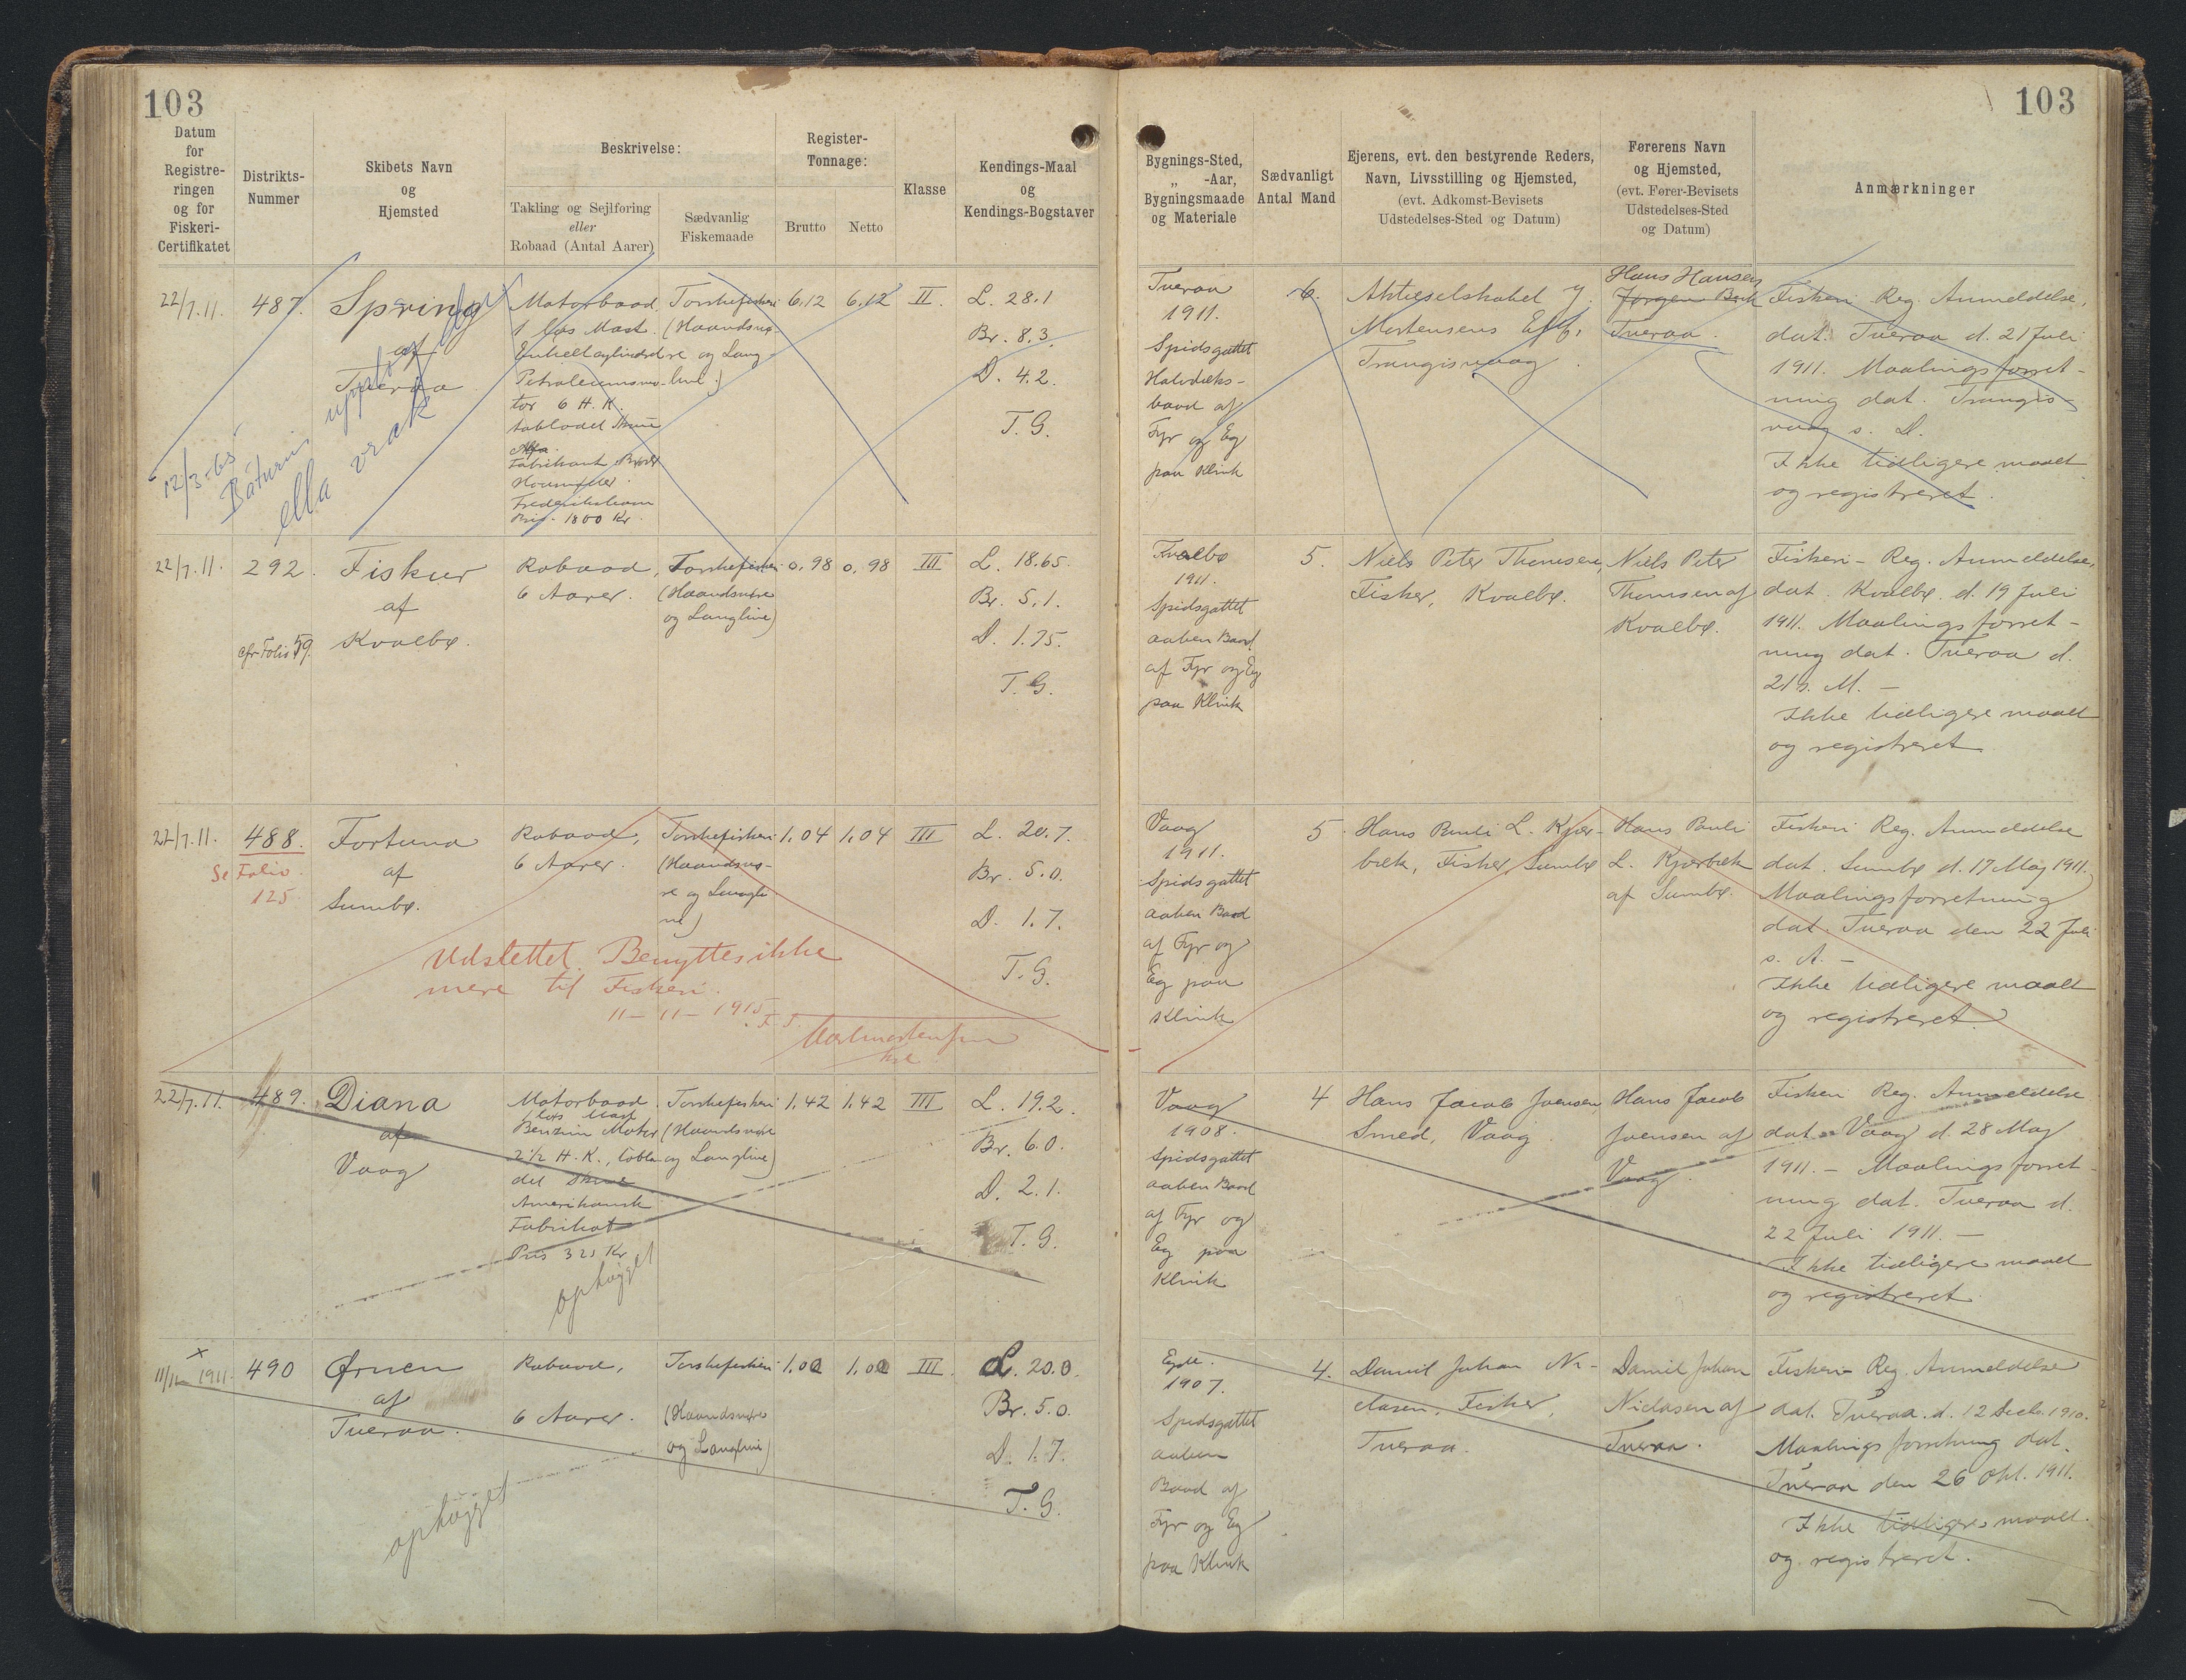 103
103
Datum
for
Registre-
ringen
og for
Fiskeri-
Certifikatet
Distrikts-
Nummer
Skibets Navn
og
Hjemsted
Beskrivelse:
Takling og Sejlføring
eller
Robaad (Antal Aarer)
Sædvanlig
Fiskemaade
Register-
Tonnage:
Brutto
Netto
Klasse
Kendings-Maal
og
Kendings-Bogstaver
Bygnings-Sted,
„ -Aar,
Bygningsmaade
og Materiale
Sædvanligt
Antal Mand
Ejerens, evt. den bestyrende Reders,
Navn, Livsstilling og Hjemsted,
(evt. Adkomst-Bevisets
Udstedelses-Sted og Datum)
Førerens Navn
og Hjemsted,
(evt. Fører-Bevisets
Udstedelses-Sted
og Datum)
Anmærkninger
22/7.11.
487.
Spring
af
Tveraa
12/3-65
Báturin upphøgt
ella vrak
Motorbaad
1 løs Mast.
Enkeltcylindret
Petroleumsmo-
tor 6 H.K.
Alfa.
Fabrikant Brdr
Houmøller
Frederikshavn
Pris 1800 Kr.
Torskefiskeri
(Haandsnø-
re og Lang-
line)
6,12
6,12
II.
L. 28.1
Br. 8.3.
D. 4.2.
T.G.
Tveraa
1911.
Spidsgattet
Halvdæks-
baad af
Fyr og Eg
paa Klink
6.
Aktieselskabet J.
Mortensens Eftf.
Trangisvaag.
Hans Hansen
Jørgen Bech
Tveraa.
Fiskeri Reg. Anmeldelse,
dat. Tveraa d. 21 Juli
1911. Maalingsforret-
ning dat. Trangis-
vaag s. D.
Ikke tidligere maalt
og registreret.
22/7.11.
292.
cfr Folio 59.
Fiskur
af
Kvalbø.
Robaad,
6 Aarer.
Torskefiskeri
(Haandsnøre
og Langline)
0,98
0,98
III
L. 18.65.
Br. 5.1.
D. 1.75.
T.G.
Kvalbø
1911.
Spidsgattet
aaben Baad
af Fyr og Eg
paa Klink
5.
Niels Peter Thomsen,
Fisker, Kvalbø.
Niels Peter
Thomsen af
Kvalbø.
Fiskeri-Reg. Anmeldelse,
dat. Kvalbø d. 19 Juli
1911. Maalingsforret-
ning dat. Tveraa d.
21 s. M. -
Ikke tidligere maalt
og registreret
22/7.11.
488.
Se Folio
125
Fortuna
af
Sumbø.
Robaad,
6 Aarer.
Torskefiskeri
(Haandsnø-
re og Langli
ne)
1,04
1,04
III
L. 20.7.
Br. 5.0.
D. 1.7.
T.G.
Udslettet. Benyttes ikke
mere til Fiskeri.
11-11-1915
Vaag
1911.
Spidsgattet
aaben Baad
af Fyr og
Eg paa
Klink
5.
Hans Pauli L. Kjær-
bæk, Fisker, Sumbø
Hans Pauli
L. Kjærbæk
af Sumbø.
Fiskeri Reg. Anmeldelse
dat. Sumbø d. 17 Maj 1911.
Maalingsforretning
dat. Tveraa den 22 Juli
s. A. -
Ikke tidligere maalt
og registreret.
22/7.11.
489.
Diana
af
Vaag
Motorbaad
løs Mast
Benzin Motor
2½ H.K., tobla-
det Skrue
Amerikansk
Fabrikat
Pris 325 Kr
ophøgget
Torskefiskeri
(Haandsnøre
og Langline)
1,42
1,42
III
L. 19.2.
Br. 6.0.
D. 2.1.
T.G.
Vaag
1908.
Spidsgattet
aaben Baad
af Fyr og
Eg paa
Klink
4
Hans Jacob Joensen
Smed, Vaag.
Hans Jacob
Joensen af
Vaag.
Fiskeri Reg. Anmeldelse
dat. Vaag d. 28 Maj
1911. - Maalingsforret-
ning dat. Tveraa d.
22 Juli 1911. -
Ikke tidligere maalt
og registreret.
x
11/11 1911.
490
Ørnen
af
Tveraa.
ophøgget
Robaad,
6 Aarer.
Torskefiskeri
(Haandsnøre
og Langline)
1.02
1.02
III.
L. 20.0.
Br. 5.0.
D. 1.7.
T.G.
Egde.
1907.
Spidsgattet
aaben
Baad af
Fyr og Eg
paa Klink
4.
Daniel Johan Ni-
clasen, Fisker,
Tveraa.
Daniel Johan
Niclasen af
Tveraa.
Fiskeri-Reg. Anmeldelse
dat. Tveraa. d. 12 Decb. 1910.
Maalingsforretning dat.
Tveraa den 26 Okt. 1911.
Ikke tidligere maalt.
og registreret.